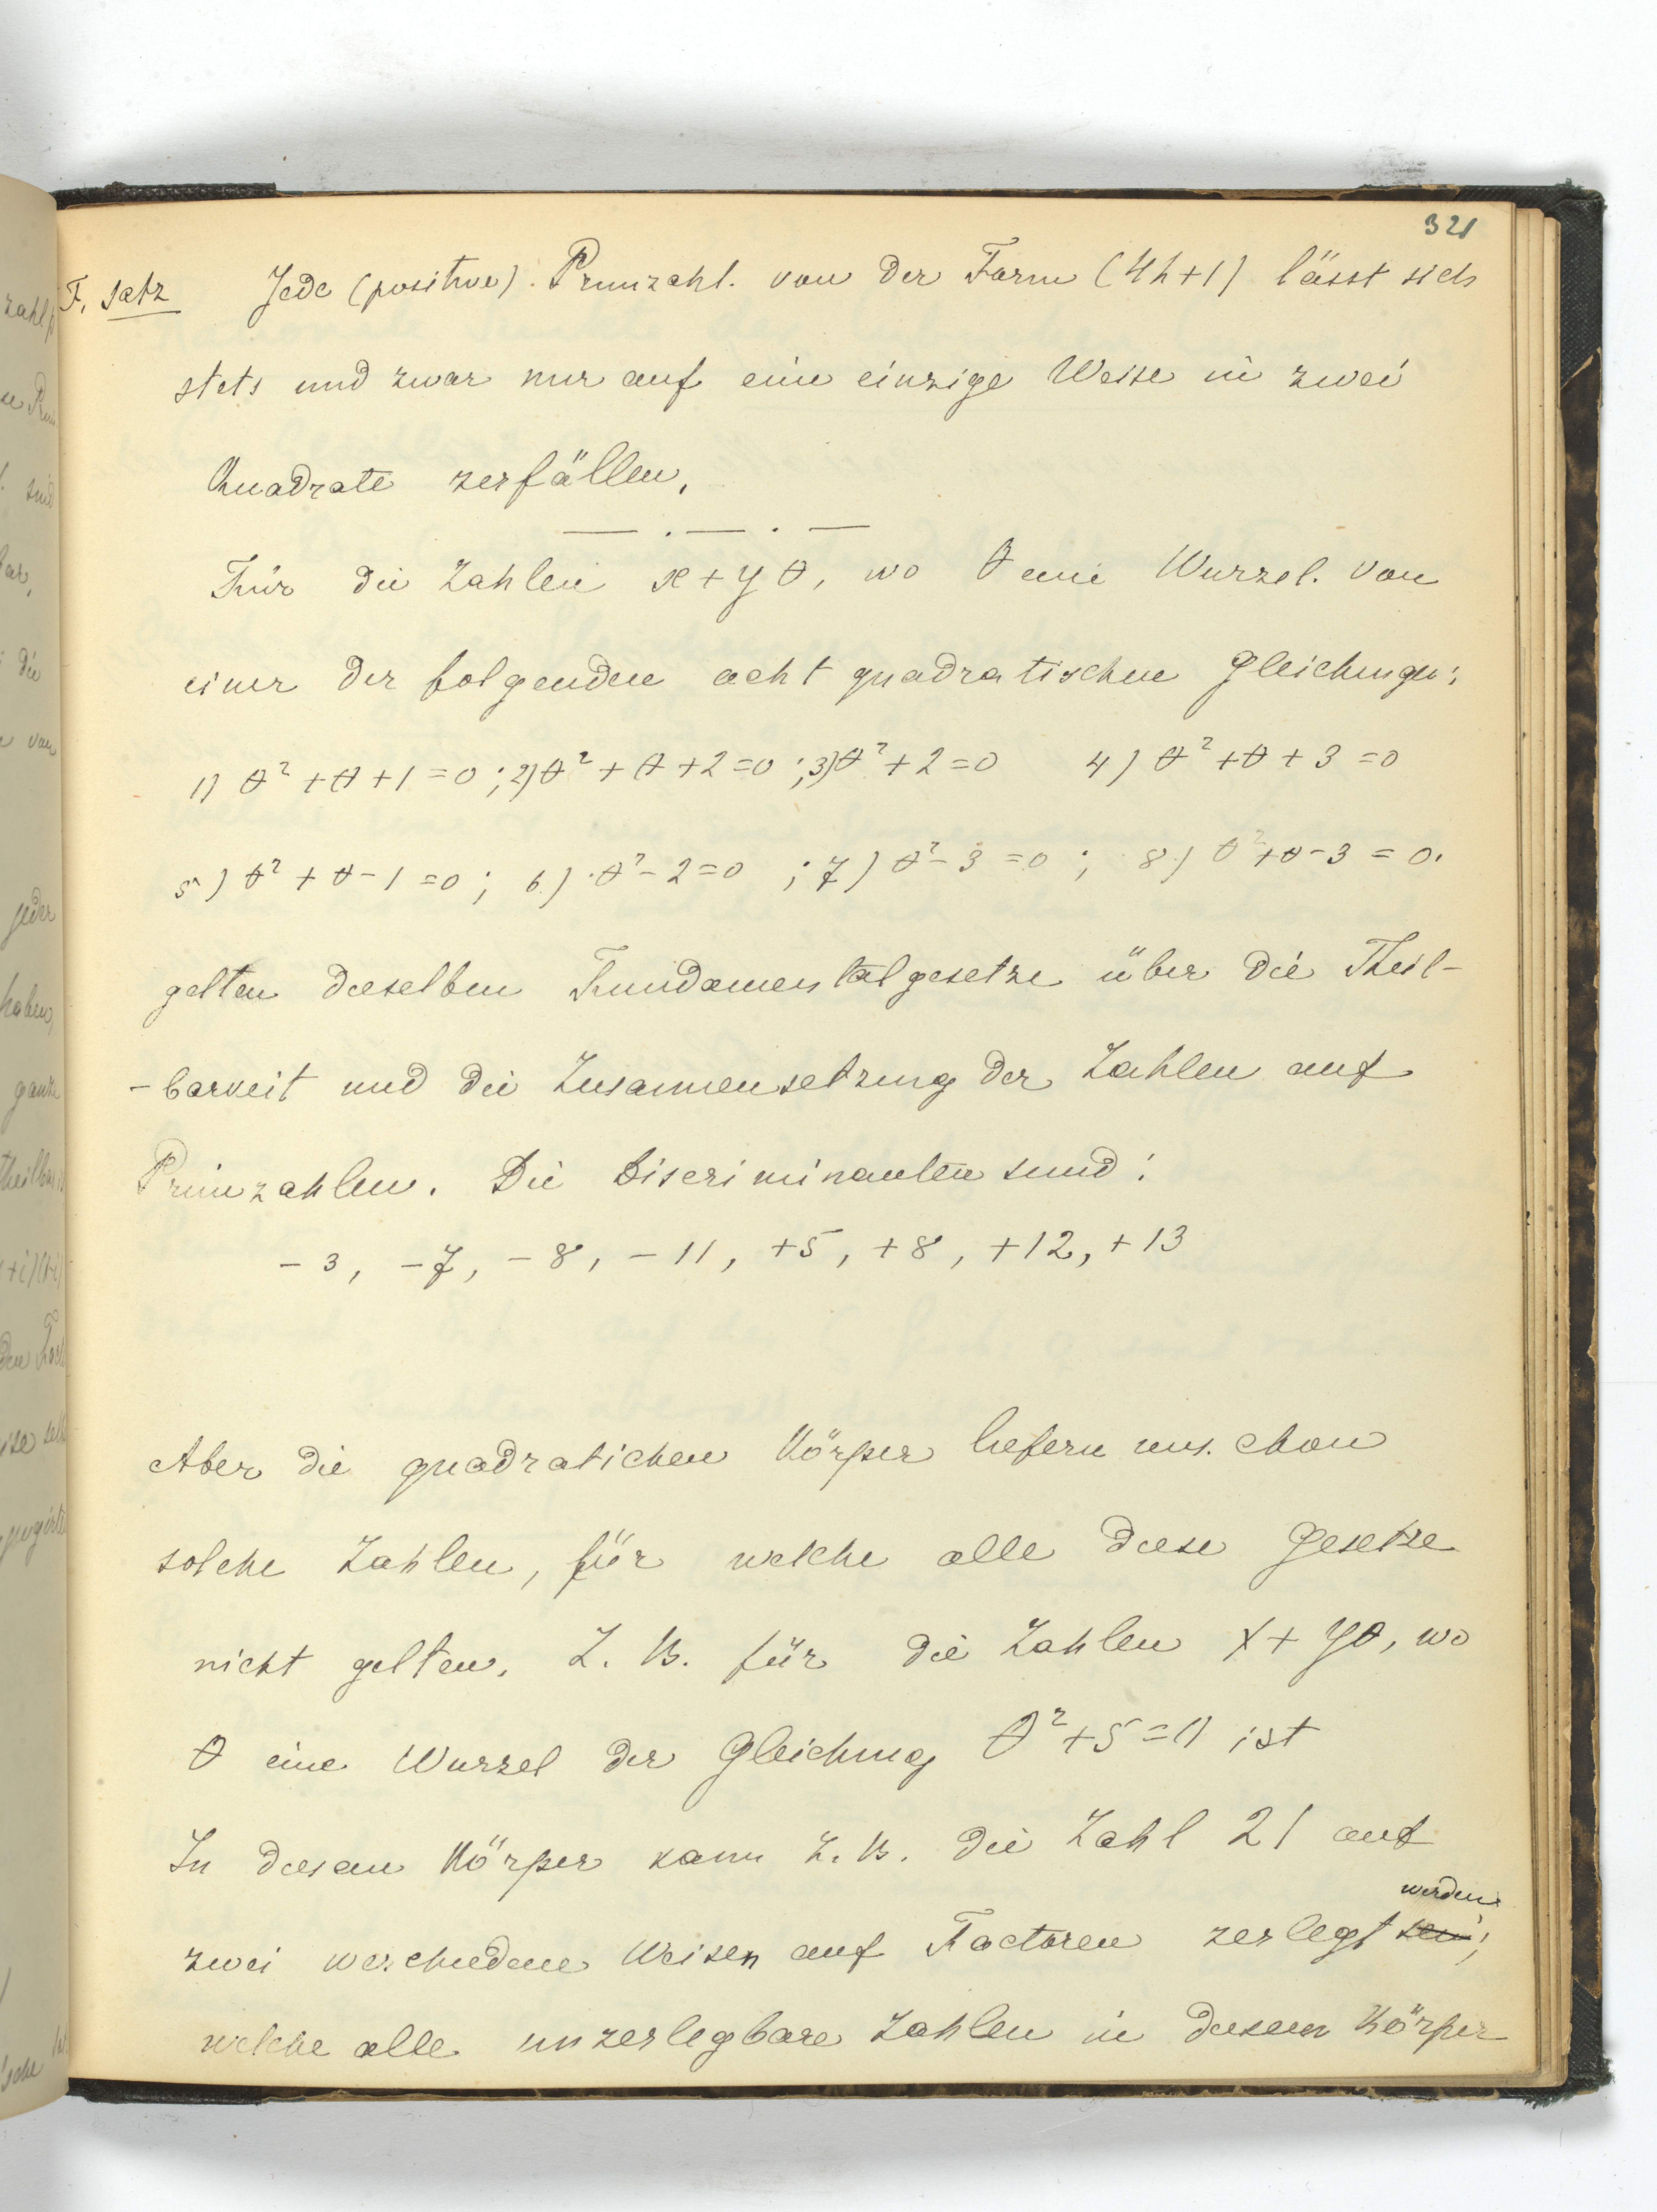 321
F. Satz Jede (positive). Primzahl. von der Form (4h+1) lässt sich
stets und zwar nur auf eine einzige Weise in zwei
Quadrate zerfällen.
Für die Zahlen x+yθ, wo θ eine Wurzel. von
einer der folgenden acht quadratischen Gleichungen:
1) θ²+θ+1=0; 2) θ²+θ+2=0; 3) θ²+2=0 4) θ²+θ+3=0
5) θ²+θ-1=0; 6) θ²-2=0; 7) θ²-3=0; 8) θ²+θ-3=0.
gelten dieselben Fundamentalgesetze über die Theil-
-barkeit und die Zusammensetzung der Zahlen auf
Primzahlen. Die Discriminanten sind:
-3, -7, -8, -11, +5, +8, +12, +13
Aber die quadratichen Körper liefern uns. chon
solche Zahlen, für welche alle diese Gesetze
nicht gelten. Z. B. für die Zahlen x+yθ, wo
θ eine Wurzel der Gleichung θ²+5=0 ist
In diesem Körper kann z. B. die Zahl 21 auf
werden
zwei verchiedene Weisen auf Factoren zerlegt sein;
welche alle unzerlegbare Zahlen in diesem Körper